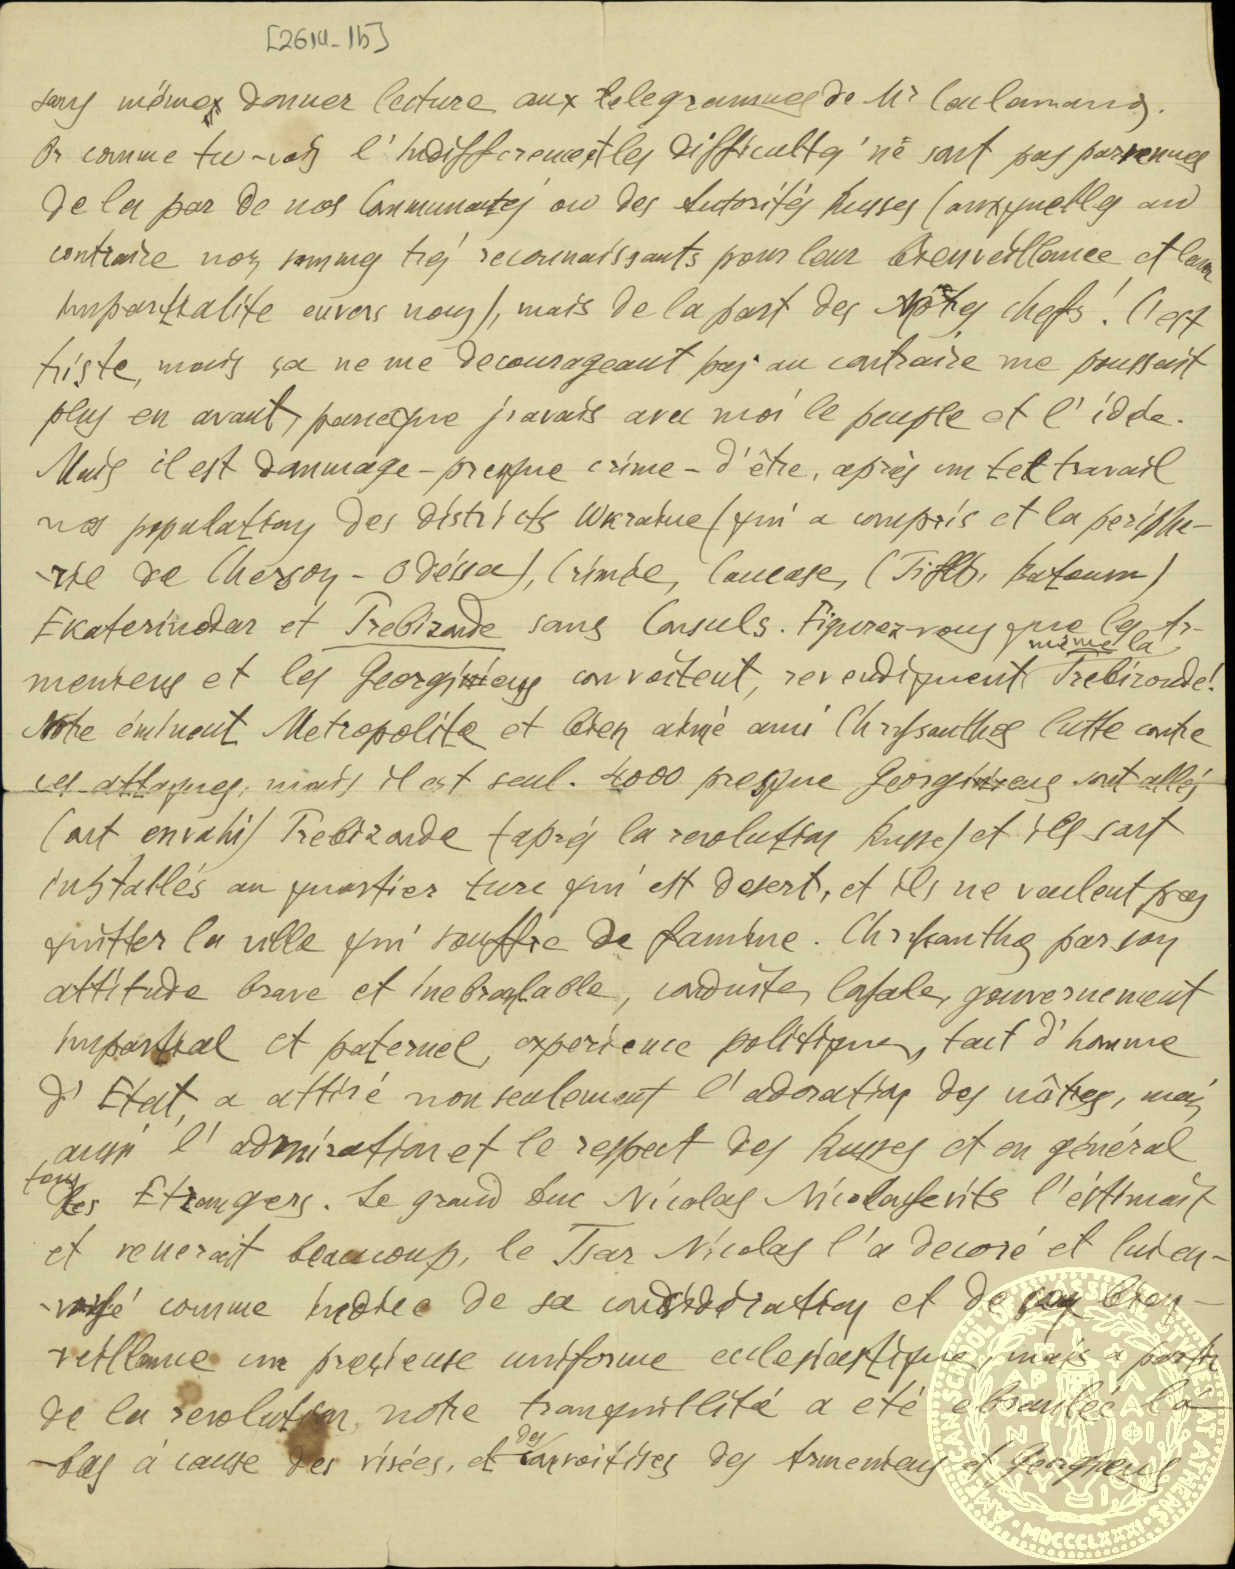 [2614-1b]
sans même donner lecture aux telegrammes de Mr Coulamano.
Or comme tu vois l'indifference et les difficultés ne sont pas parvenues
de la par de nos Communautés ou des Autorités Russes (auxquelles au
contraire nous sommes très reconnaissants pour leur bienveillance et leur
impartialite envers nous), mais de la part des Nôtres chefs! C'est
triste, mais ça ne me decourageant pas au contraire me poussait
plus en avant, parceque j'avais avec moi le peuple et l'idée.
Mais il est dommage - presque crime - d'être, après un tel travail
nos populations des districts Ukraine (qui a compris et la periphe-
-rie de Cherson - Odéssa), Crimée, Caucase, (Tiflis, Batoum)
Ekaterinodar et Trebizonde sans Consuls. Figurez-vous que les Ar-
meniens et les Georgiens convoitent, revendiquent même la Trebizonde!
Notre éminent Metropolite et bien aimé ami Chrysanthos lutte contre
ces attaques, mais il est seul. 4000 presque Georgiens sont allés
(ont envahi) Trebizonde (après la revolution Russe) et ils sont
installés au quartier turc qui est desert, et ils ne veulent pas
quitter la ville qui souffre de famine. Chrysanthos par son
attitude brave et inebranlable, conduite loyale, gouvernement
impartial et paternel, experience politique, tact d'homme
d'Etat, a attiré non seulement l'adoration des nôtres, mais
aussi l'admiration et le respect des Russes et en général
tous les Etrangers. Le grand Duc Nicolas Nicolayevits l'éstimait
et venerait beaucoup, le Tsar Nicolas l'a decoré et lui en-
-voyé comme indice de sa considération et de son bien-
veillance un precieuse uniforme eclesiastique, mais a partir
de la revolution notre tranquillité a eté ebranlée là
-bas à cause des visées, et des convoitises des Armeniens et Georgiens
AMERICAN SCHOOL OF CLASSICAL STUDIES AT ATHENS · MDCCCLXXXI ·